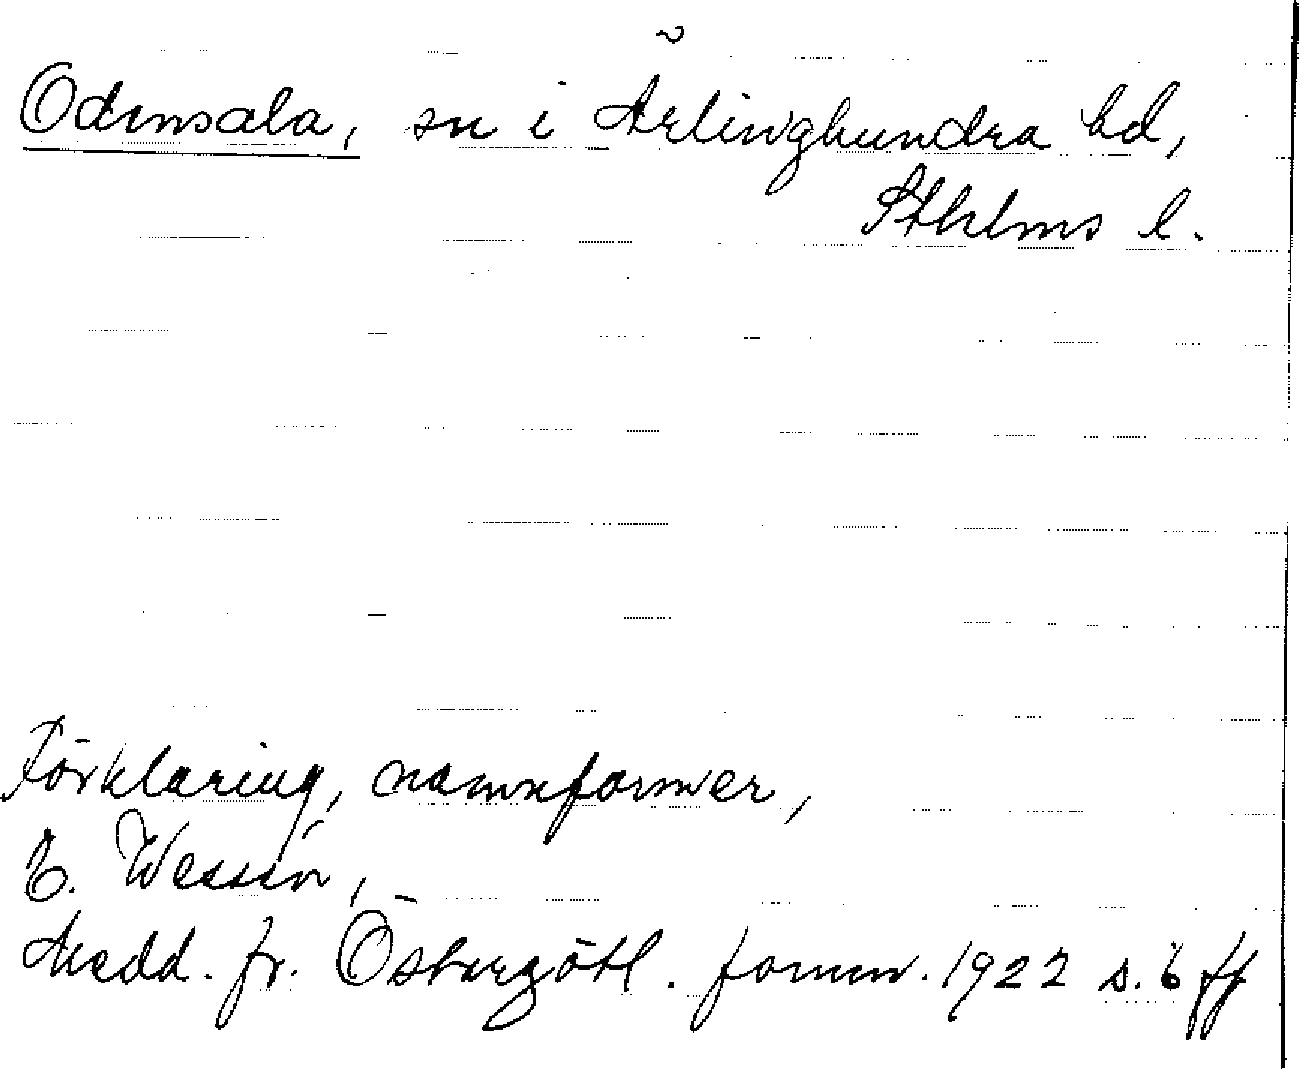 Odensala, sn i Ärlinghundra hd,
Sthlms l.
Förklaring, namnformer,
E. Wessén,
Medd. fr. Östergötl. fornm. 1922 s. 6 ff